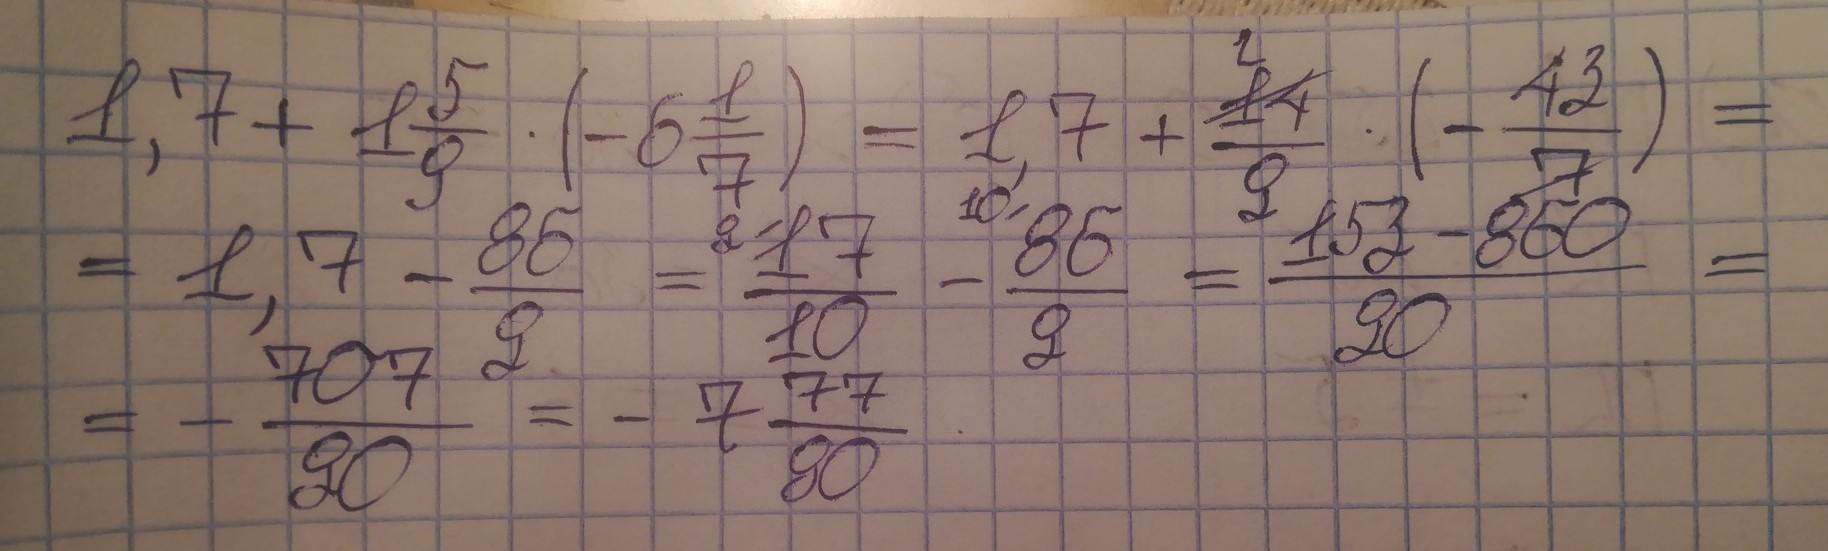 1,7 + 1 5/9 · (-6 1/7) = 1,7 + 14/9 · (-43/7) =
= 1,7 - 86/9 = 17/10 - 86/9 = 153-860/90 =
= - 707/90 = - 7 77/90